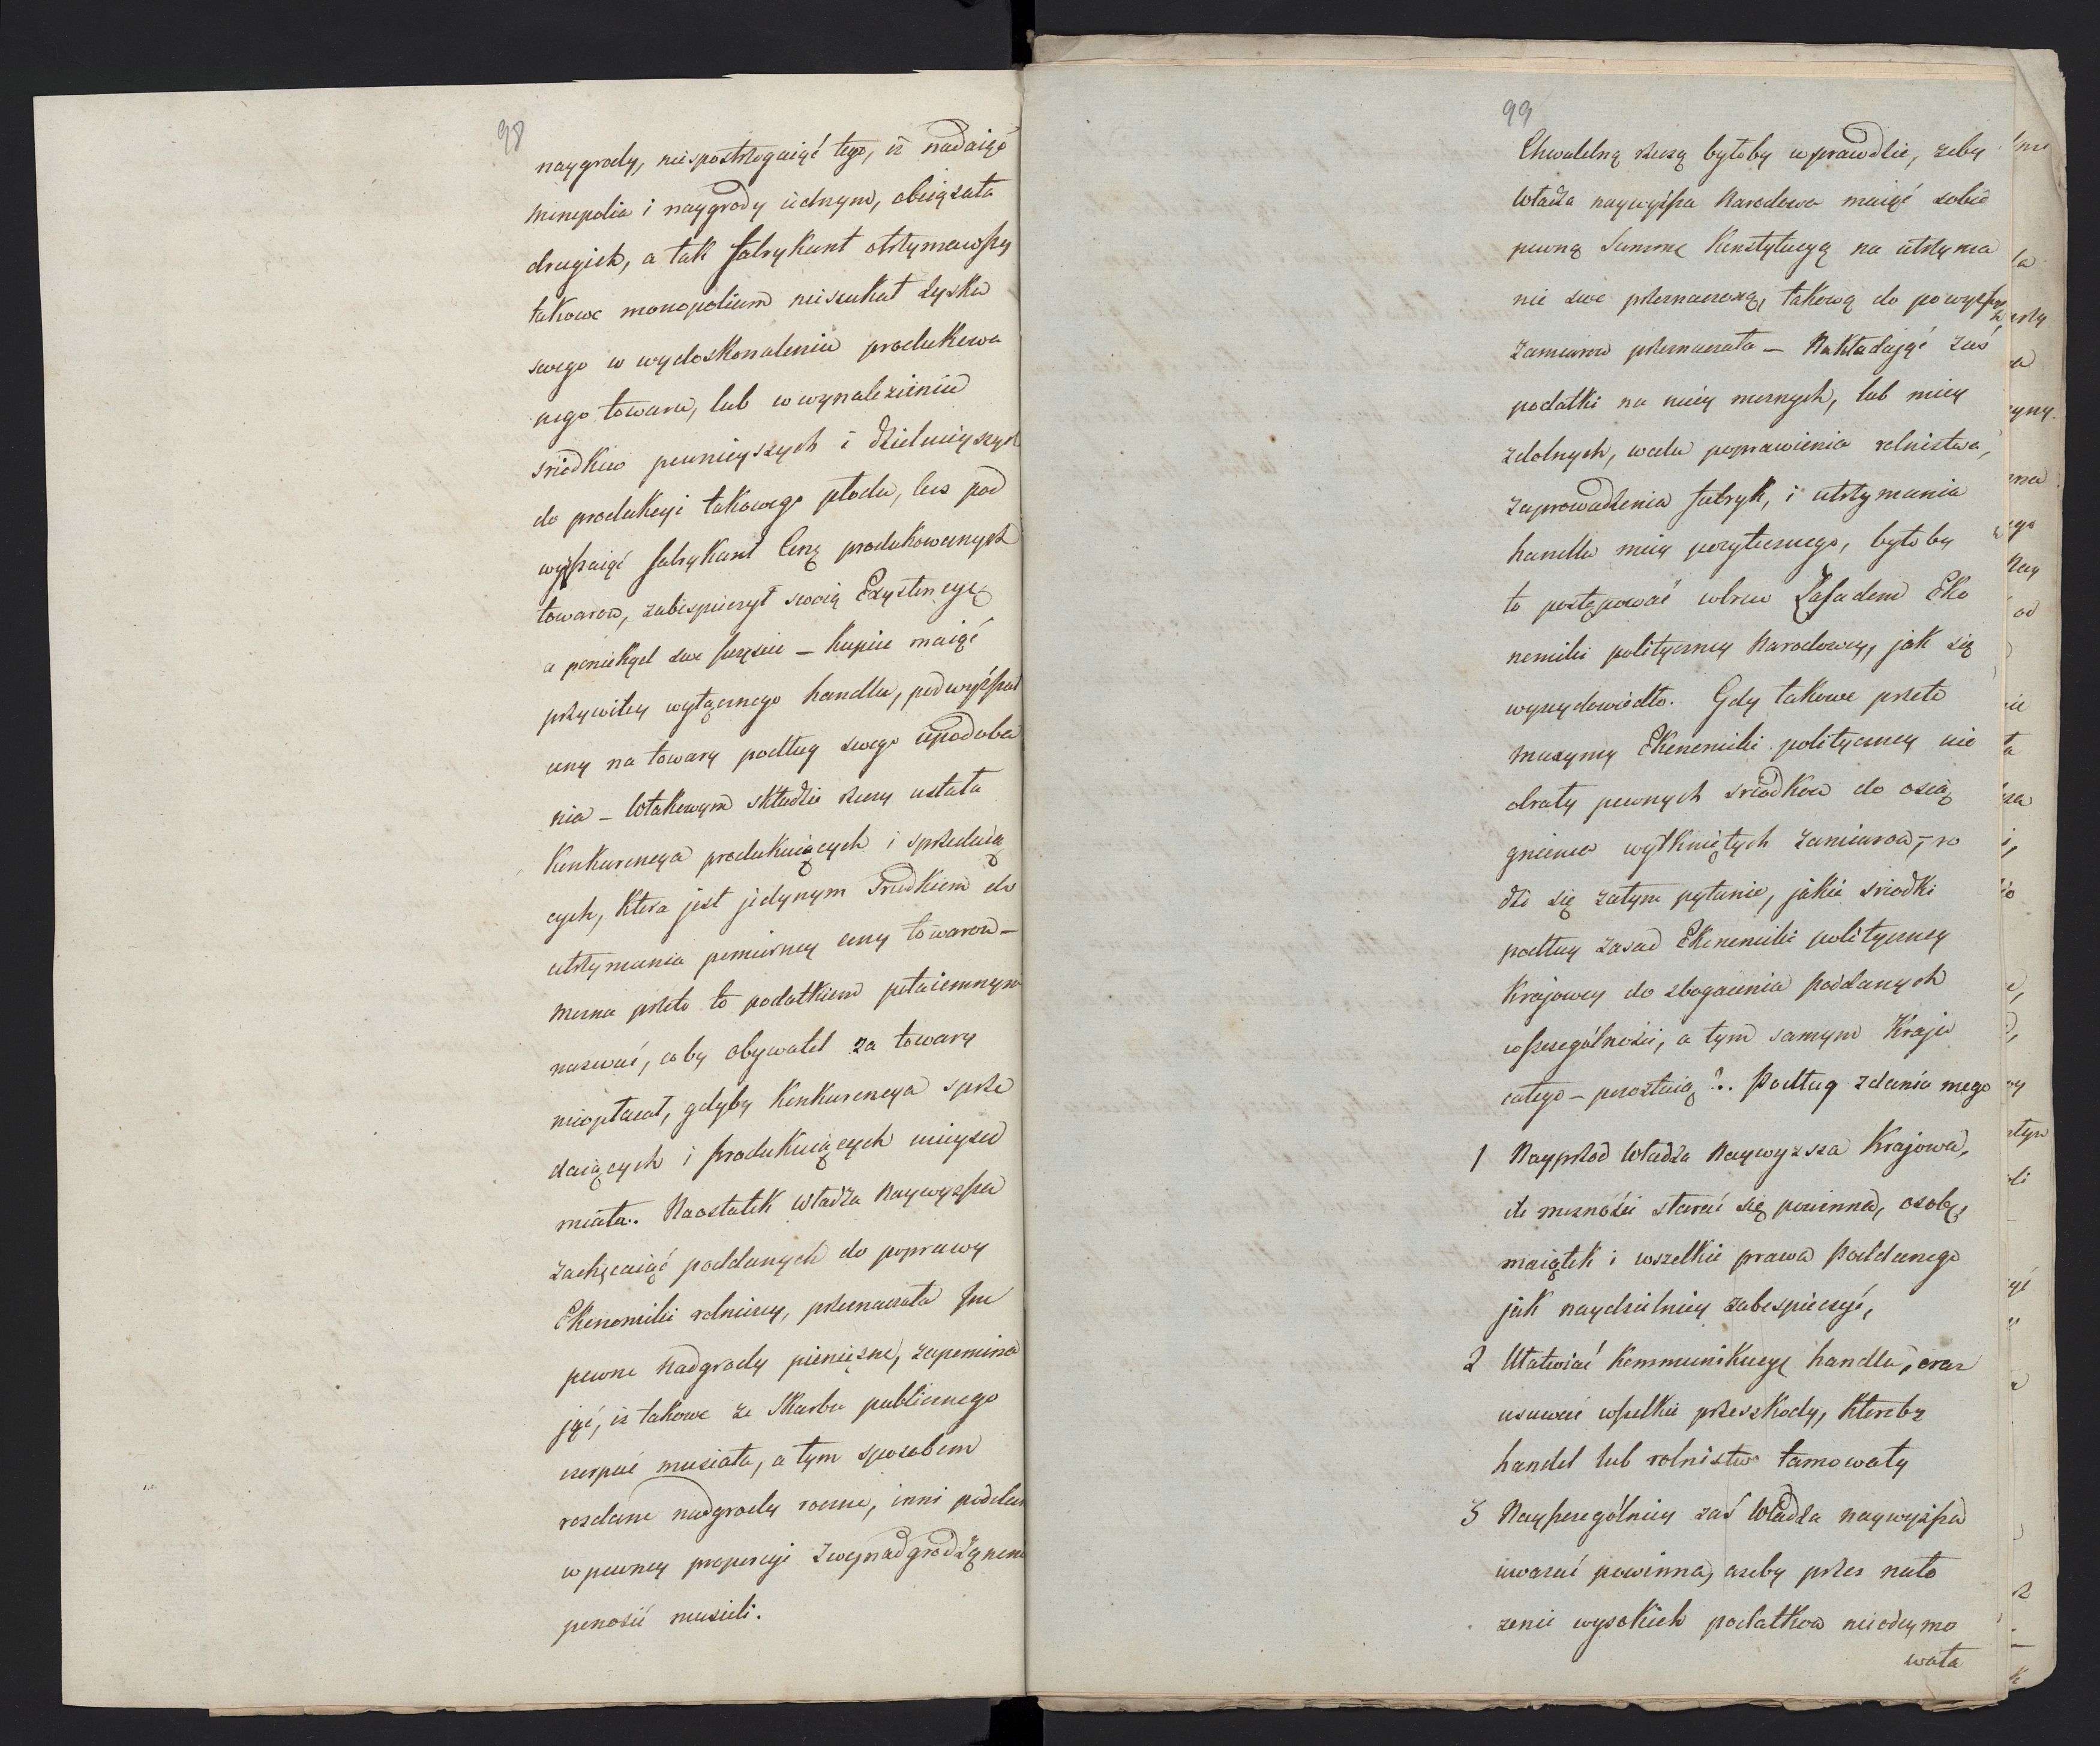 98
naygrody, niespostrzegaiąć tego, iż nadaiąć
monopolia i naygrody iednym, obciążała
drugich, a tak fabrykant otrzymawszy
takowe monopolium nieszukał zysku
swego w wydoskonaleniu produkowa
nego towaru, lub w wynalezieniu
sriodkow pewnieyszych i dzielnieyszych
do produkcyi takowego płodu, lecz pod
wyższaiąć fabrykant Cenę produkowanych
towarow, zabespieczył swoią Exystencyę
a poniekąd swe szczęscie – kupiec maiąć
przywiley wyłącznego handlu, podwyższał
ceny na towary podług swego upodoba
nia – Wtakowym składzie rzeczy ustała
Konkurencya produkuiących i sprzedaią
cych, ktora jest jedynym Srzodkiem do
utrzymania pomierney ceny towarow –
Mozna przeto to podatkiem potaiemnym
nazwać, coby obywatel za towary
nieopłacał, gdyby Konkurencya sprze
daiących i produkuiących mieysce
miała. Naostatek władza Naywyzsza
zachęcaiąć poddanych do poprawy
Ekonomiki rolniczey, przeznaczała Im
pewne Nadgrody pieniężne, zapomina
jąć, iz takowe ze Skarbu publicznego
czerpać musiała, a tym sposobem
rozdane nadgrody roczne, inni poddani
w pewney proporcyi
ponosić musieli.
99
Chwalebną rzeczą byłoby wprawdzie, zeby
Władza naywyższa Narodowa maiąć sobie
pewną Summę Konstytucyą na utrzyma
nie swe przeznaczoną, takową do powyższych
zamiarow przeznaczała – Nakładająć zaś
podatki na mniey moznych, lub mniey
zdolnych, w celu poprawienia rolnistwa,
zaprowadzenia fabryk, i utrzymania
handlu mniey pozytecznego, byłoby
to postępować wbrew Zasadom Eko
nomiki polityczney Narodowey, jak się
wyzey dowiedło. Gdy takowe przeto
maxymy Ekonomiki polityczney nie
obrały pewnych sriodkow do osią
gnienia wytkniętych zamiarow, – ro
dzi się zatym pytanie, jakie sriodki
podług zasad Ekonomiki polityczney
Krajowey do zbogacenia poddanych
wszczególności, a tym samym Kraju
całego – pozostaią ?.. Podług zdania mego
1 Nayprzod Władza Naywyzsza Krajowa,
ile moznosci starać się powinna, osobę,
maiątek i wszelkie prawa Poddanego
jak naydzielniey zabespieczyć,
2 Ułatwiać Kommunikacyę handlu, oraz
usuwać wszelkie przeszkody, ktoreby
handel lub rolnistwo tamowały
3 Nayszczególniey zaś Władza naywyższa
uwazać powinna, azeby przez nało
zenie wysokich podatkow nieodeymo
wała